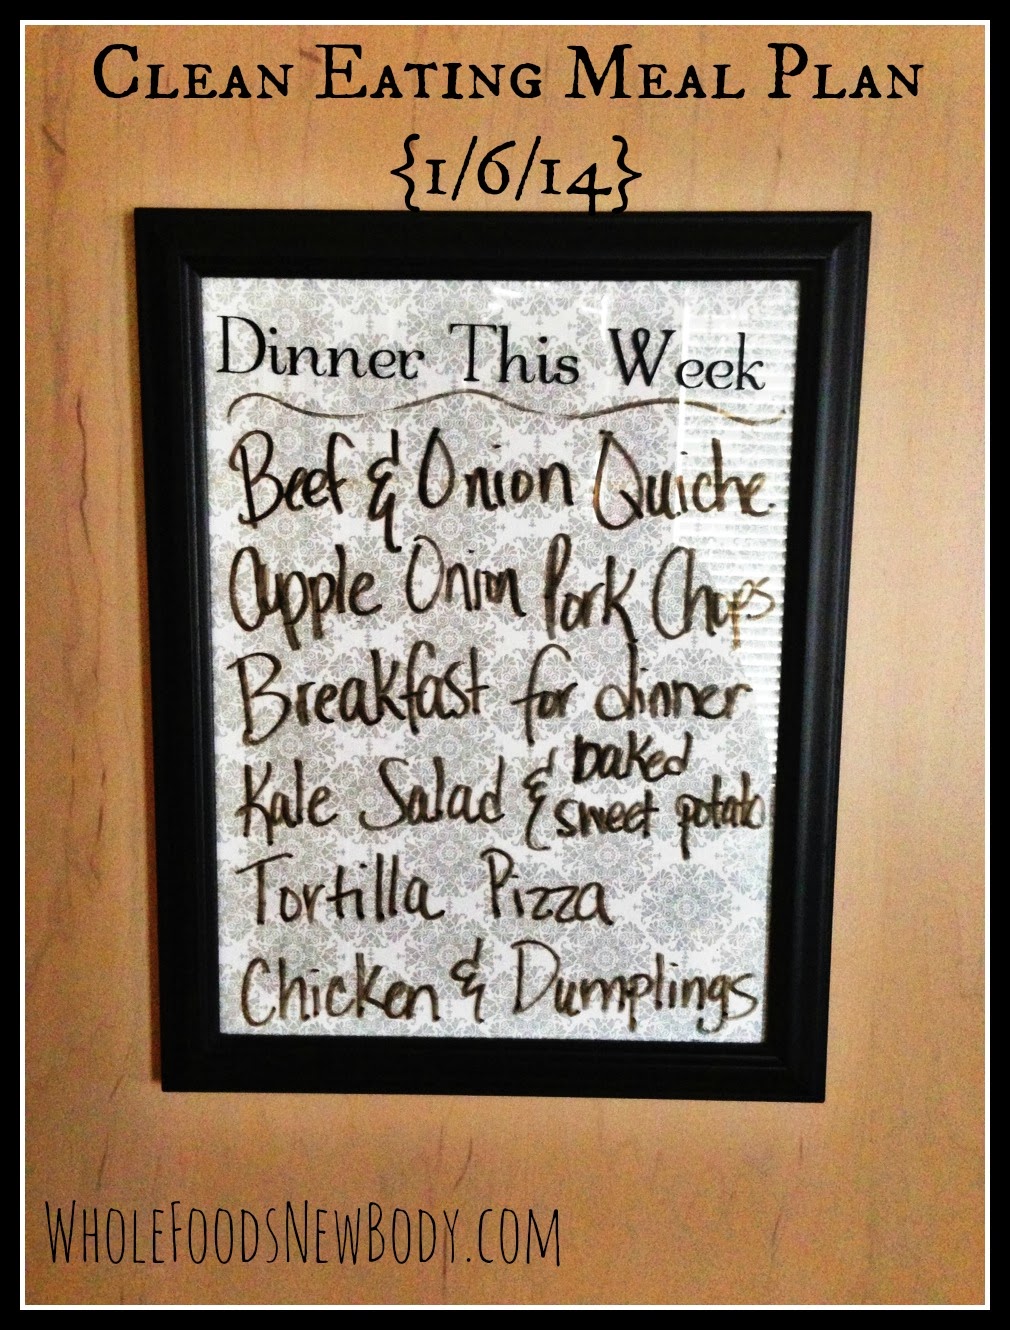 Clean Eating Meal Plan
{1/6/14}
Dinner This Week
Beef & Onion Quiche
Apple Onion Pork Chops
Breakfast for dinner
Kale Salad & baked
sweet potato
Tortilla Pizza
Chicken & Dumplings
WholeFoodsNewBody.com